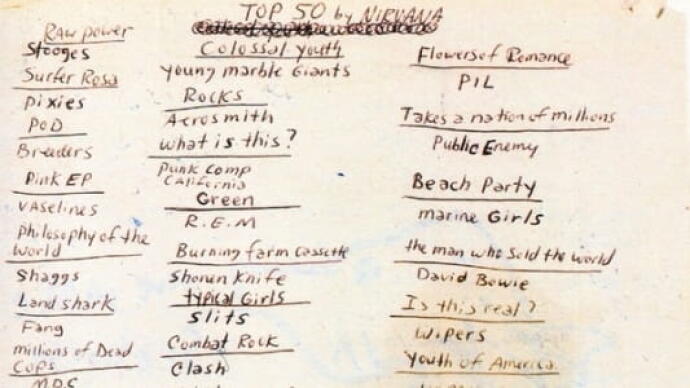 TOP 50 by NIRVANA
Raw power
Stooges
Surfer Rosa
Pixies
POD
Breeders
Pink EP
Vaselines
Philosophy of the
World
Shaggs
Land shark
Fang
millions of Dead
Cops
MDC
Colossal youth
Young marble Giants
Rocks
Aerosmith
What is this?
Punk Comp
California
Green
R.E.M
Burning farm Cassette
Shonen Knife
typical Girls
Slits
Combat Rock
Clash
Flowers of Romance
PIL
Takes a nation of millions
Public Enemy
Beach Party
marine Girls
the man who Sold the world
David Bowie
Is this real?
Wipers
Youth of America